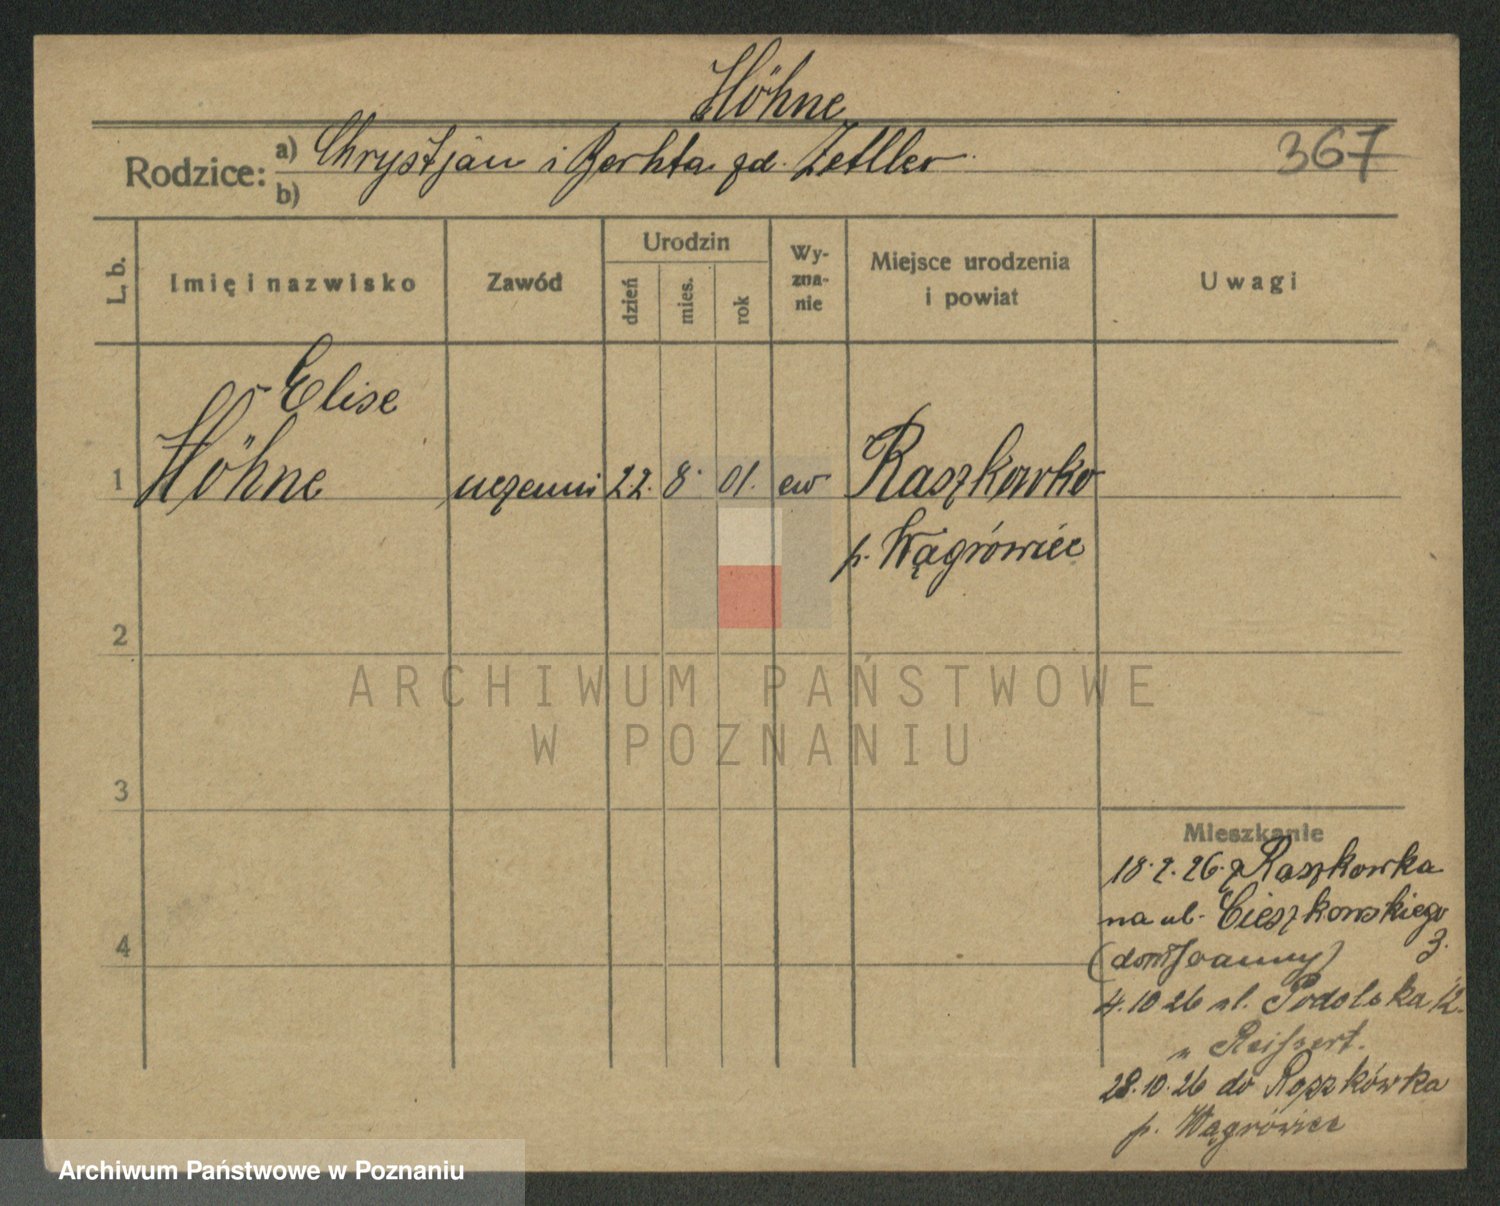 Höhne
Rodzice: a) Chrystjan i Berhta gd. Zettler
b)
367
L. b.
Imię i nazwisko
Zawód
Urodzin
dzień
mies.
rok
Wy-
zna-
nie
Miejsce urodzenia
i powiat
Uwagi
Elise
1 Höhne uczenni 22. 8. 01. ew Raszkowko
p. Wągrówiec
2
ARCHIWUM PAŃSTWOWE
W POZNANIU
3
Mieszkanie
18.2.26. z Raszkowka
na ul. Cieszkowskiego
3.
4
(dom Joanny)
4.10 26 ul. Podolska 12.
" Reissert.
28.10.26 do Roszkówka
p. Wągrówiec
Archiwum Państwowe w Poznaniu